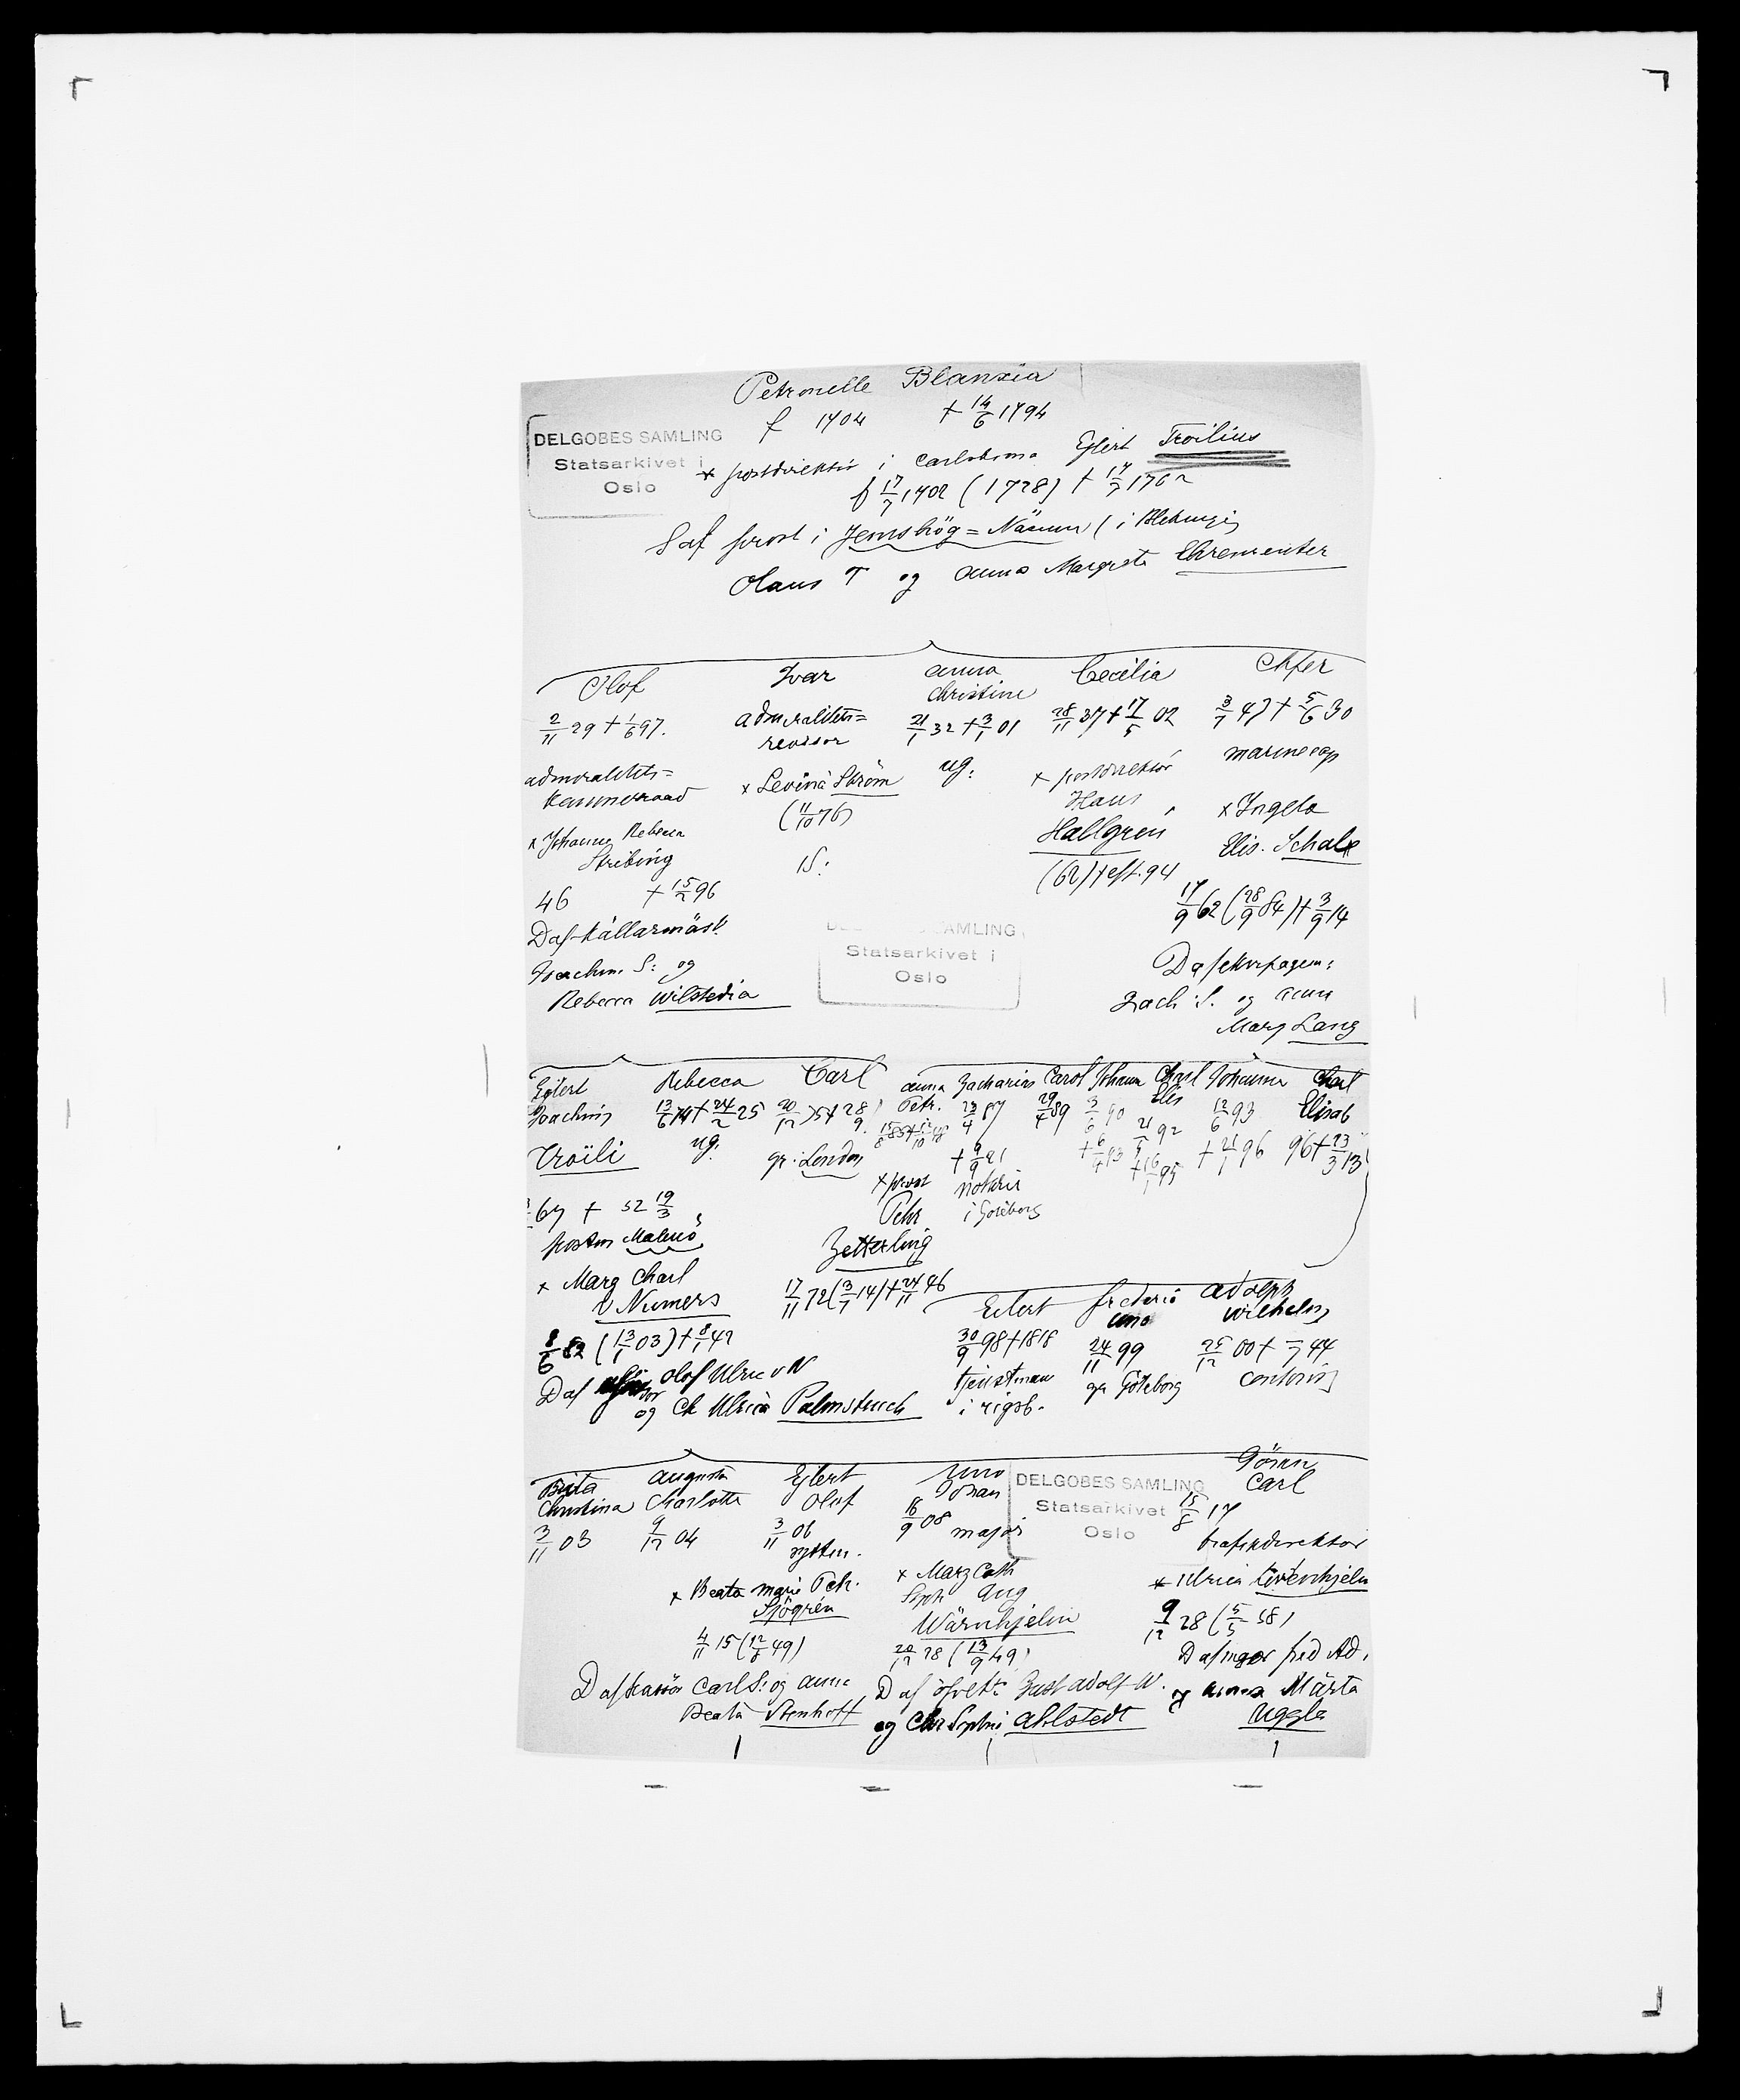 Petronelle Blanxia
f 1704 † 14/6 1794
DELGOBES SAMLING
Statsarkivet i
Oslo
× postdirektör i Carlskrona Eylert Troilius
f 17/7 1702 (1728) † 17/7 1762
S af prost i Jemshög = Näsum (i Blekinge)
Olaus T og Anna Margreta Ehrenreuter
Olof
2/11 29 † 1/6 97.
admiralitets=
kammerraad
× Johanna Rebecca
Stribing
46 † 15/2 96
D af Källarmäst.
Joachim S: og
Rebecca Wilstedia
Ivar
admiralitets=
revisor
× Levina Ström
(11/10 76)
IS:
Anna
Christine
21/1 32 † 3/1 01
ug:
Cecilia
28/11 37 † 17/5 02
× postdirektör
Hans
Hallgren
(62) † eft. 94
3/7 47 † 5/6 30
marinecap
× Ingela
Elis. Schale
17/9 62 (28/9 84) † 3/9 14
Zach S. og Anna
Marg Lang
DELGOBES SAMLING
Statsarkivet i
Oslo
Eylert
Joachim
Troili
67 † 52 19/3
postm Malmö
× Marg Charl
v Numers
8/6 82 (13/1 03) † 8/1 42
D af Olof Ulric v N
og Ch Ulrica Palmstruch
Rebecca
13/6 74 † 24/2 25
ug.
Carl
20/12 75 † 28/9
gr: London
Anna
Petr.
× prost
Pehr
Zetterling
17/11 72 (3/7 14) † 24/11 46
Zacharias
23/4 87
† 9/9 21
notarie
i Göteborg
Carol
29/4 89
Johan
3/6 90
† 6/4 93
Charl
Elis
21/5 92
† 16/1 95
Johanna
12/6 93
† 21/1 96
Charl
Elisab
96 † 23/3 13
Eilert
30/9 98 † 1818
tjenstman
i rigsb.
Frederic
Uno
24/11 99
gr Göteborg
Adolph
Wilhelm
25/12 00 † 7 44
Brita
Christina
3/11 03
Augusta
Charlotte
9/12 04
Eylert
Olof
3/11 06
× Beata Marie Petr.
Sjögrén
4/11 15 (12/6 49)
D af Carl S: og Anna
Beata Stenhoff
Uno
Johan
16/9 08 major
× Marg Cath
Soph Aug
Wärnhjelm
20/12 28 (13/9 49)
D af öfvlt: Gust Adolf W.
og Chr Sophie Ahlstedt
DELGOBES SAMLING
Statsarkivet
Oslo
Göran
Carl
15/8 17
trafikdirektor
× Ulrica
9/12 28 (5/5 58)
D af major Fred Ad.
og Anna Märta
Uggla